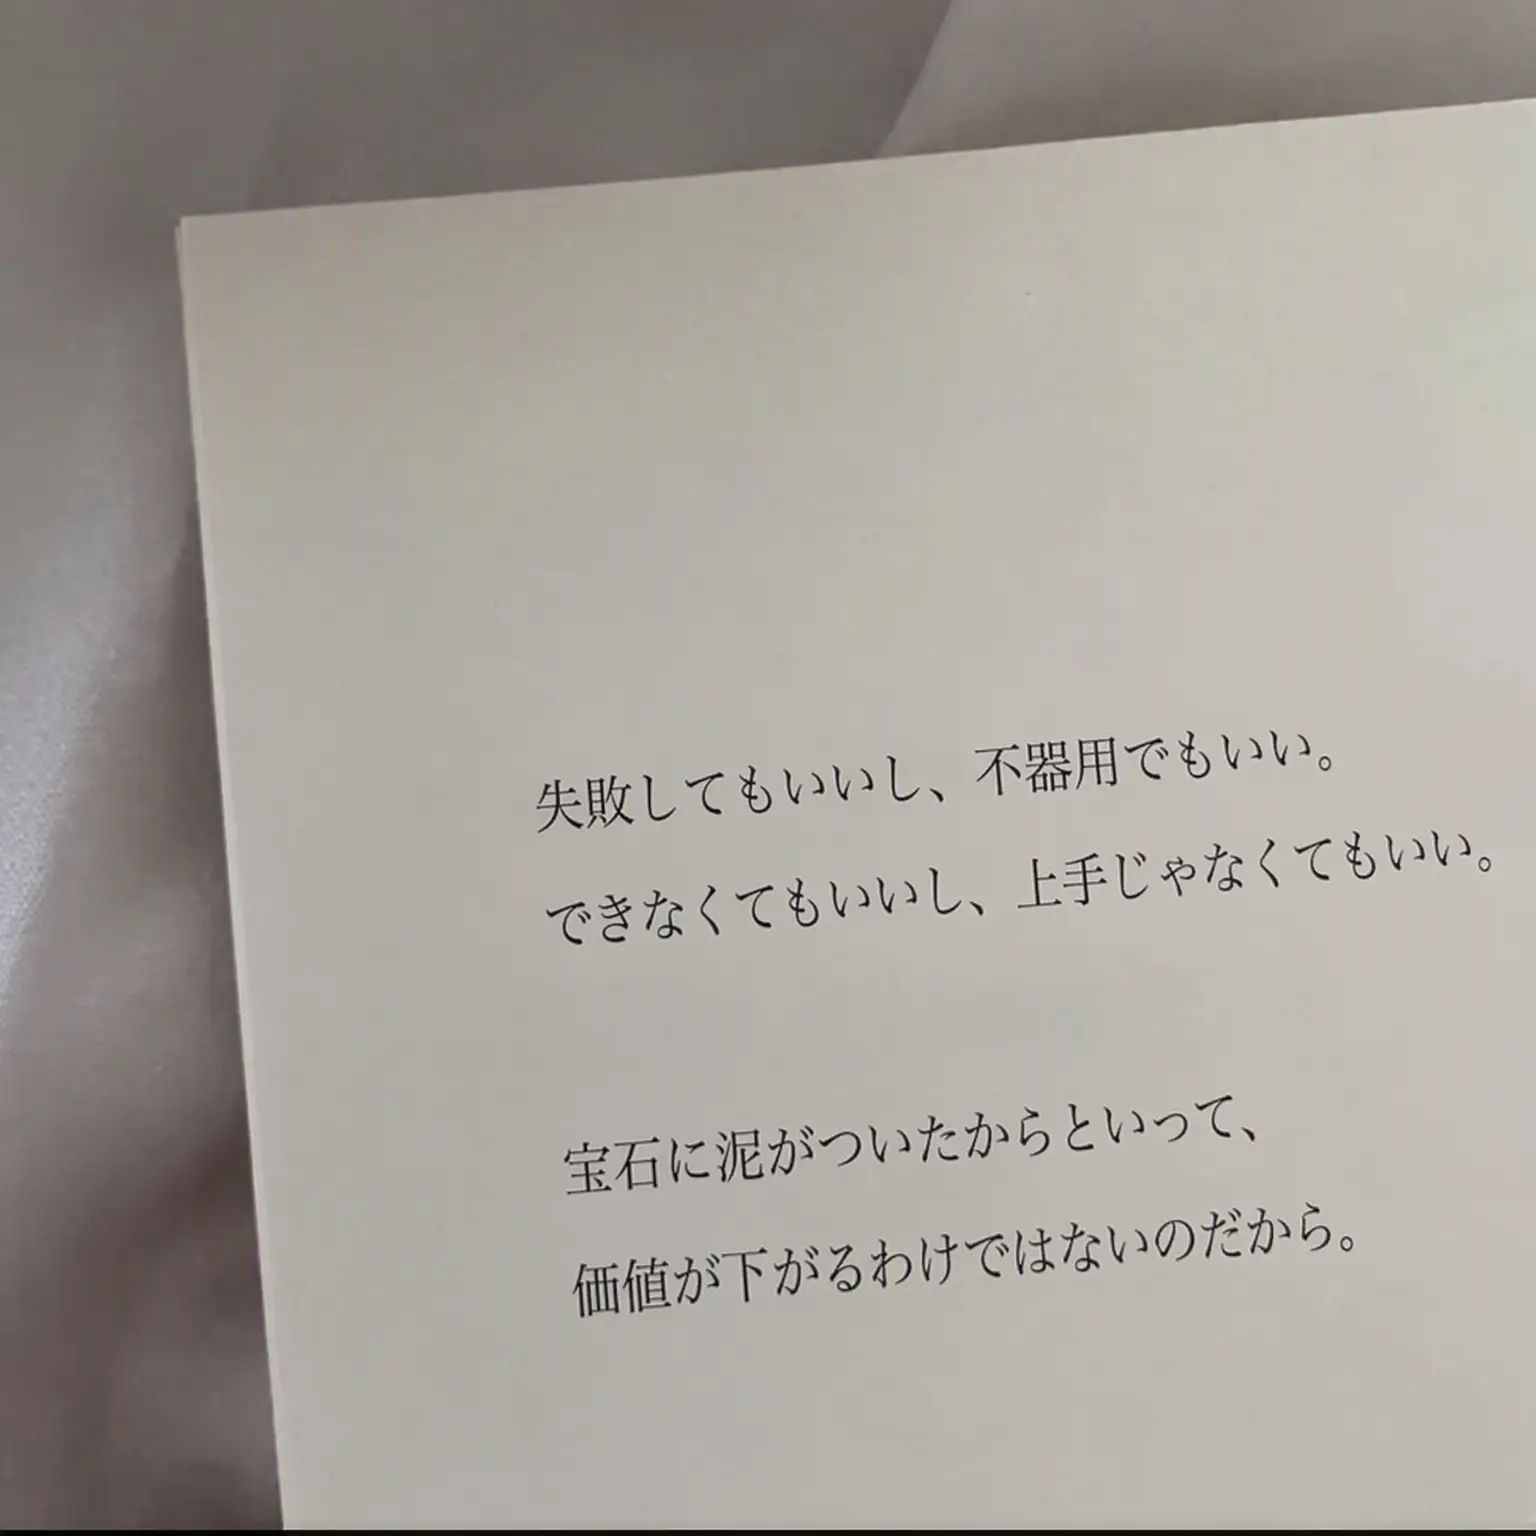 失敗してもいいし、不器用でもいい。
できなくてもいいし、上手じゃなくてもいい。
宝石に泥がついたからといって、
価値が下がるわけではないのだから。